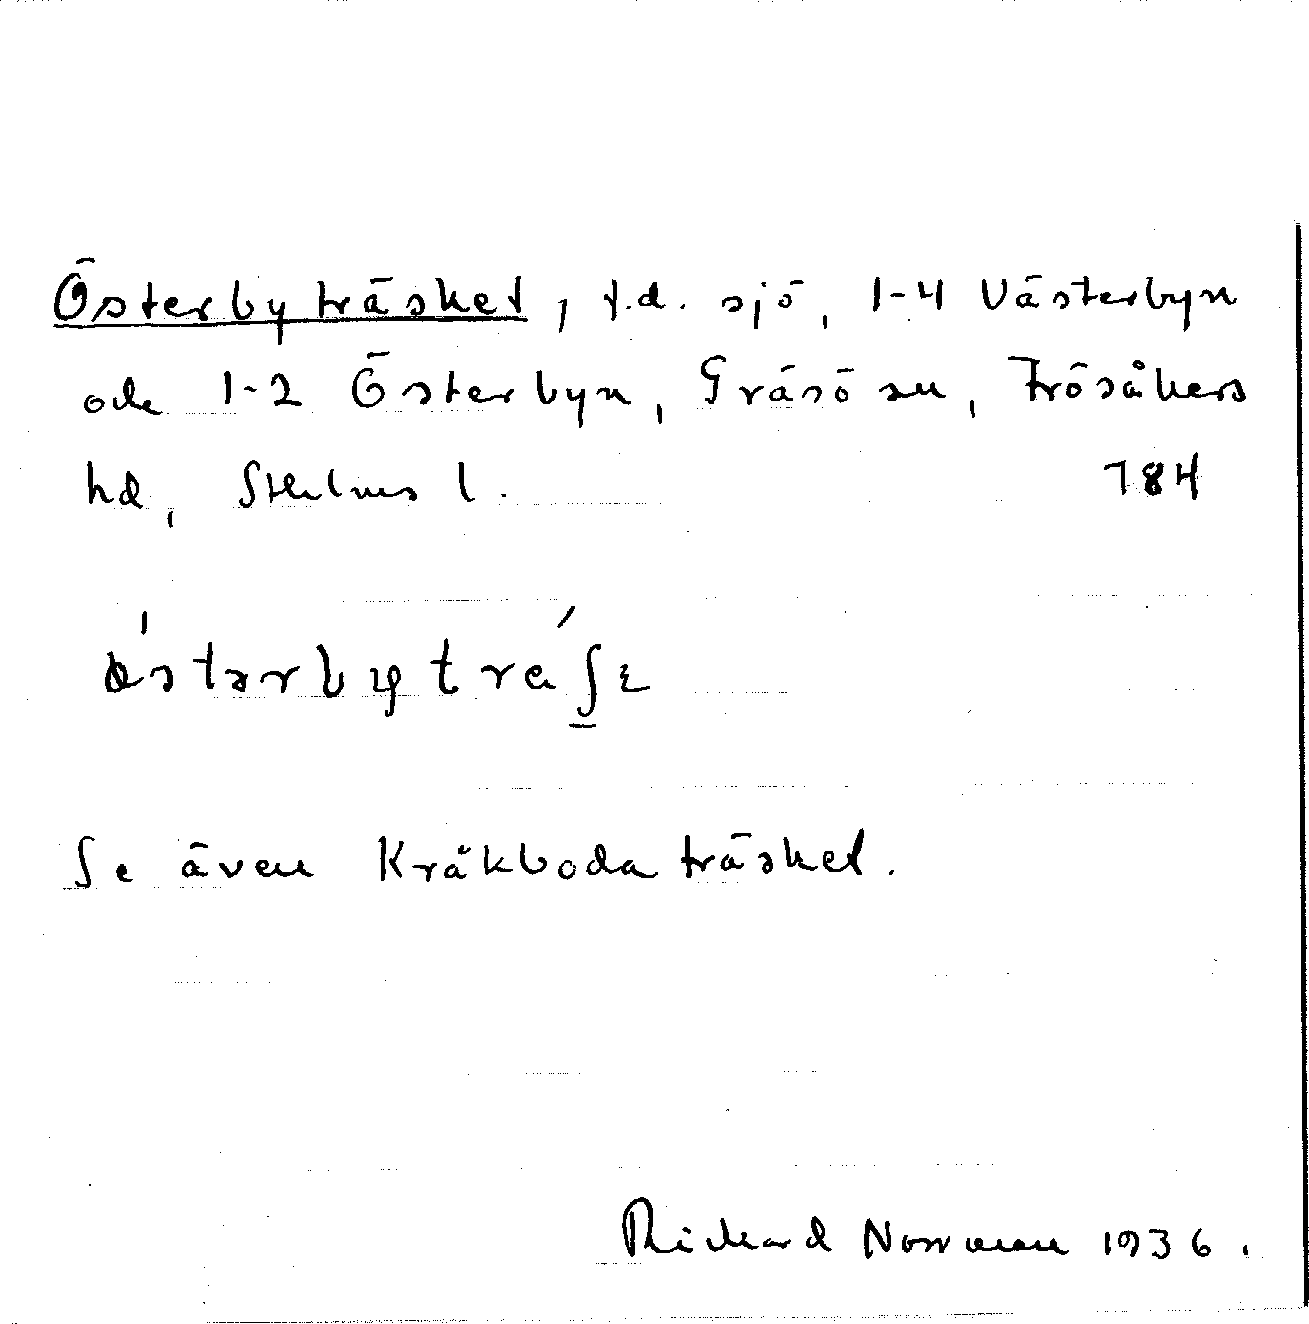 Österbyträsket, f.d. sjö, 1-4 Västerbyn
och 1-2 Österbyn, Gräsö sn, Frösåkers
hd, Sthlms l. 784
Se även Kråkbodaträsket.
Rickard Norrman 1936.